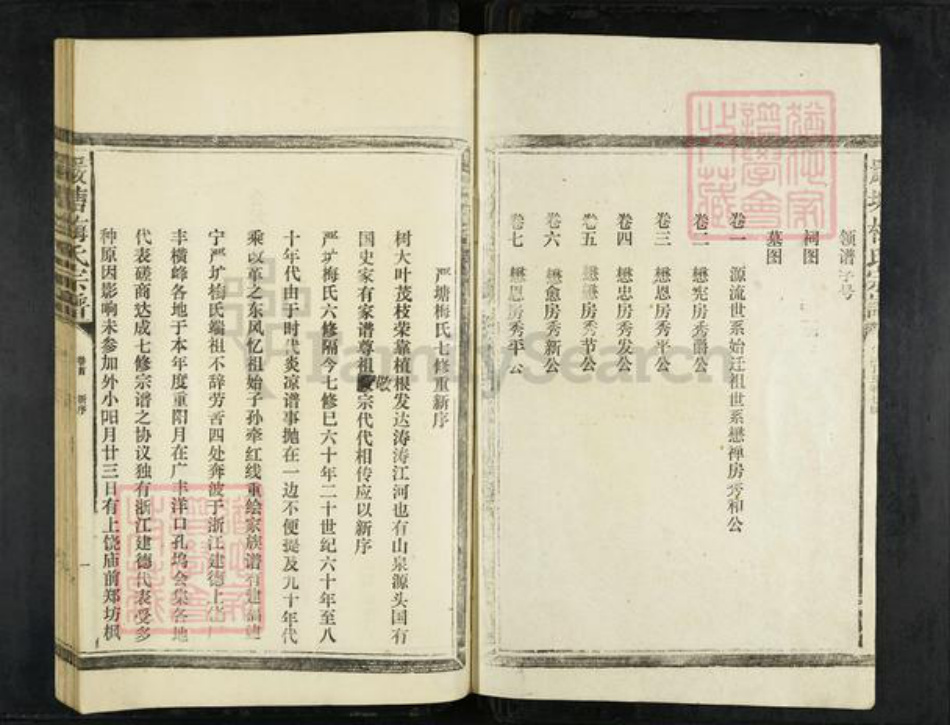 领谱字号
祠图
墓图
卷一　源流世系始迁祖世系懋禅房秀和公
卷二　懋宪房秀爵公
卷三　懋恩房秀平公
卷四　懋忠房秀发公
卷五　懋房秀节公
卷六　懋愈房秀新公
卷七　懋恩房秀平公
严塘梅氏七修重新序
树大叶茂枝荣靠植根发达涛涛江河也有山泉源头国有
国史家有家谱尊祖敬宗代代相传应以新序
严圹梅氏六修隔今七修已六十年二十世纪六十年至八
十年代由于时代炎凉谱事抛在一边不便提及九十年代
乘改革之东风忆祖始子孙牵红线重绘家族谱有建
宁严圹梅氏端祖不辞劳苦四处奔波于浙江建德上
丰横峰各地于本年度重阳月在广丰洋口孔坞会集各地
代表磋商达成七修宗谱之协议独有浙江建德代表受多
种原因影响未参加外小阳月廿三日有上饶庙前郑坊枫
嚴塘梅氏宗譜
卷首
新序
一
FamilySearch